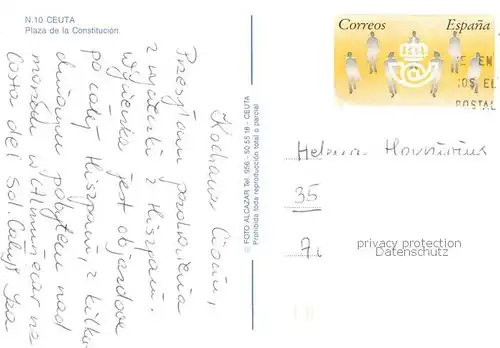 N.10 CEUTA
Plaza de la Constitución
Kochana Ciociu,
Przesyłam pozdrowienia
z wycieczki z Hiszpanii.
Wycieczka jest objazdowa
po całej Hiszpanii, z kilku
dniowym pobytem nad
morzem w Almuñecar na
Costa del Sol. Całuję
© FOTO ALCAZAR Tel. 956 - 50 55 18 - CEUTA
Prohibida toda reproducción total o parcial
Correos España
EL
POSTAL
Helena
35
privacy protection
Datenschutz